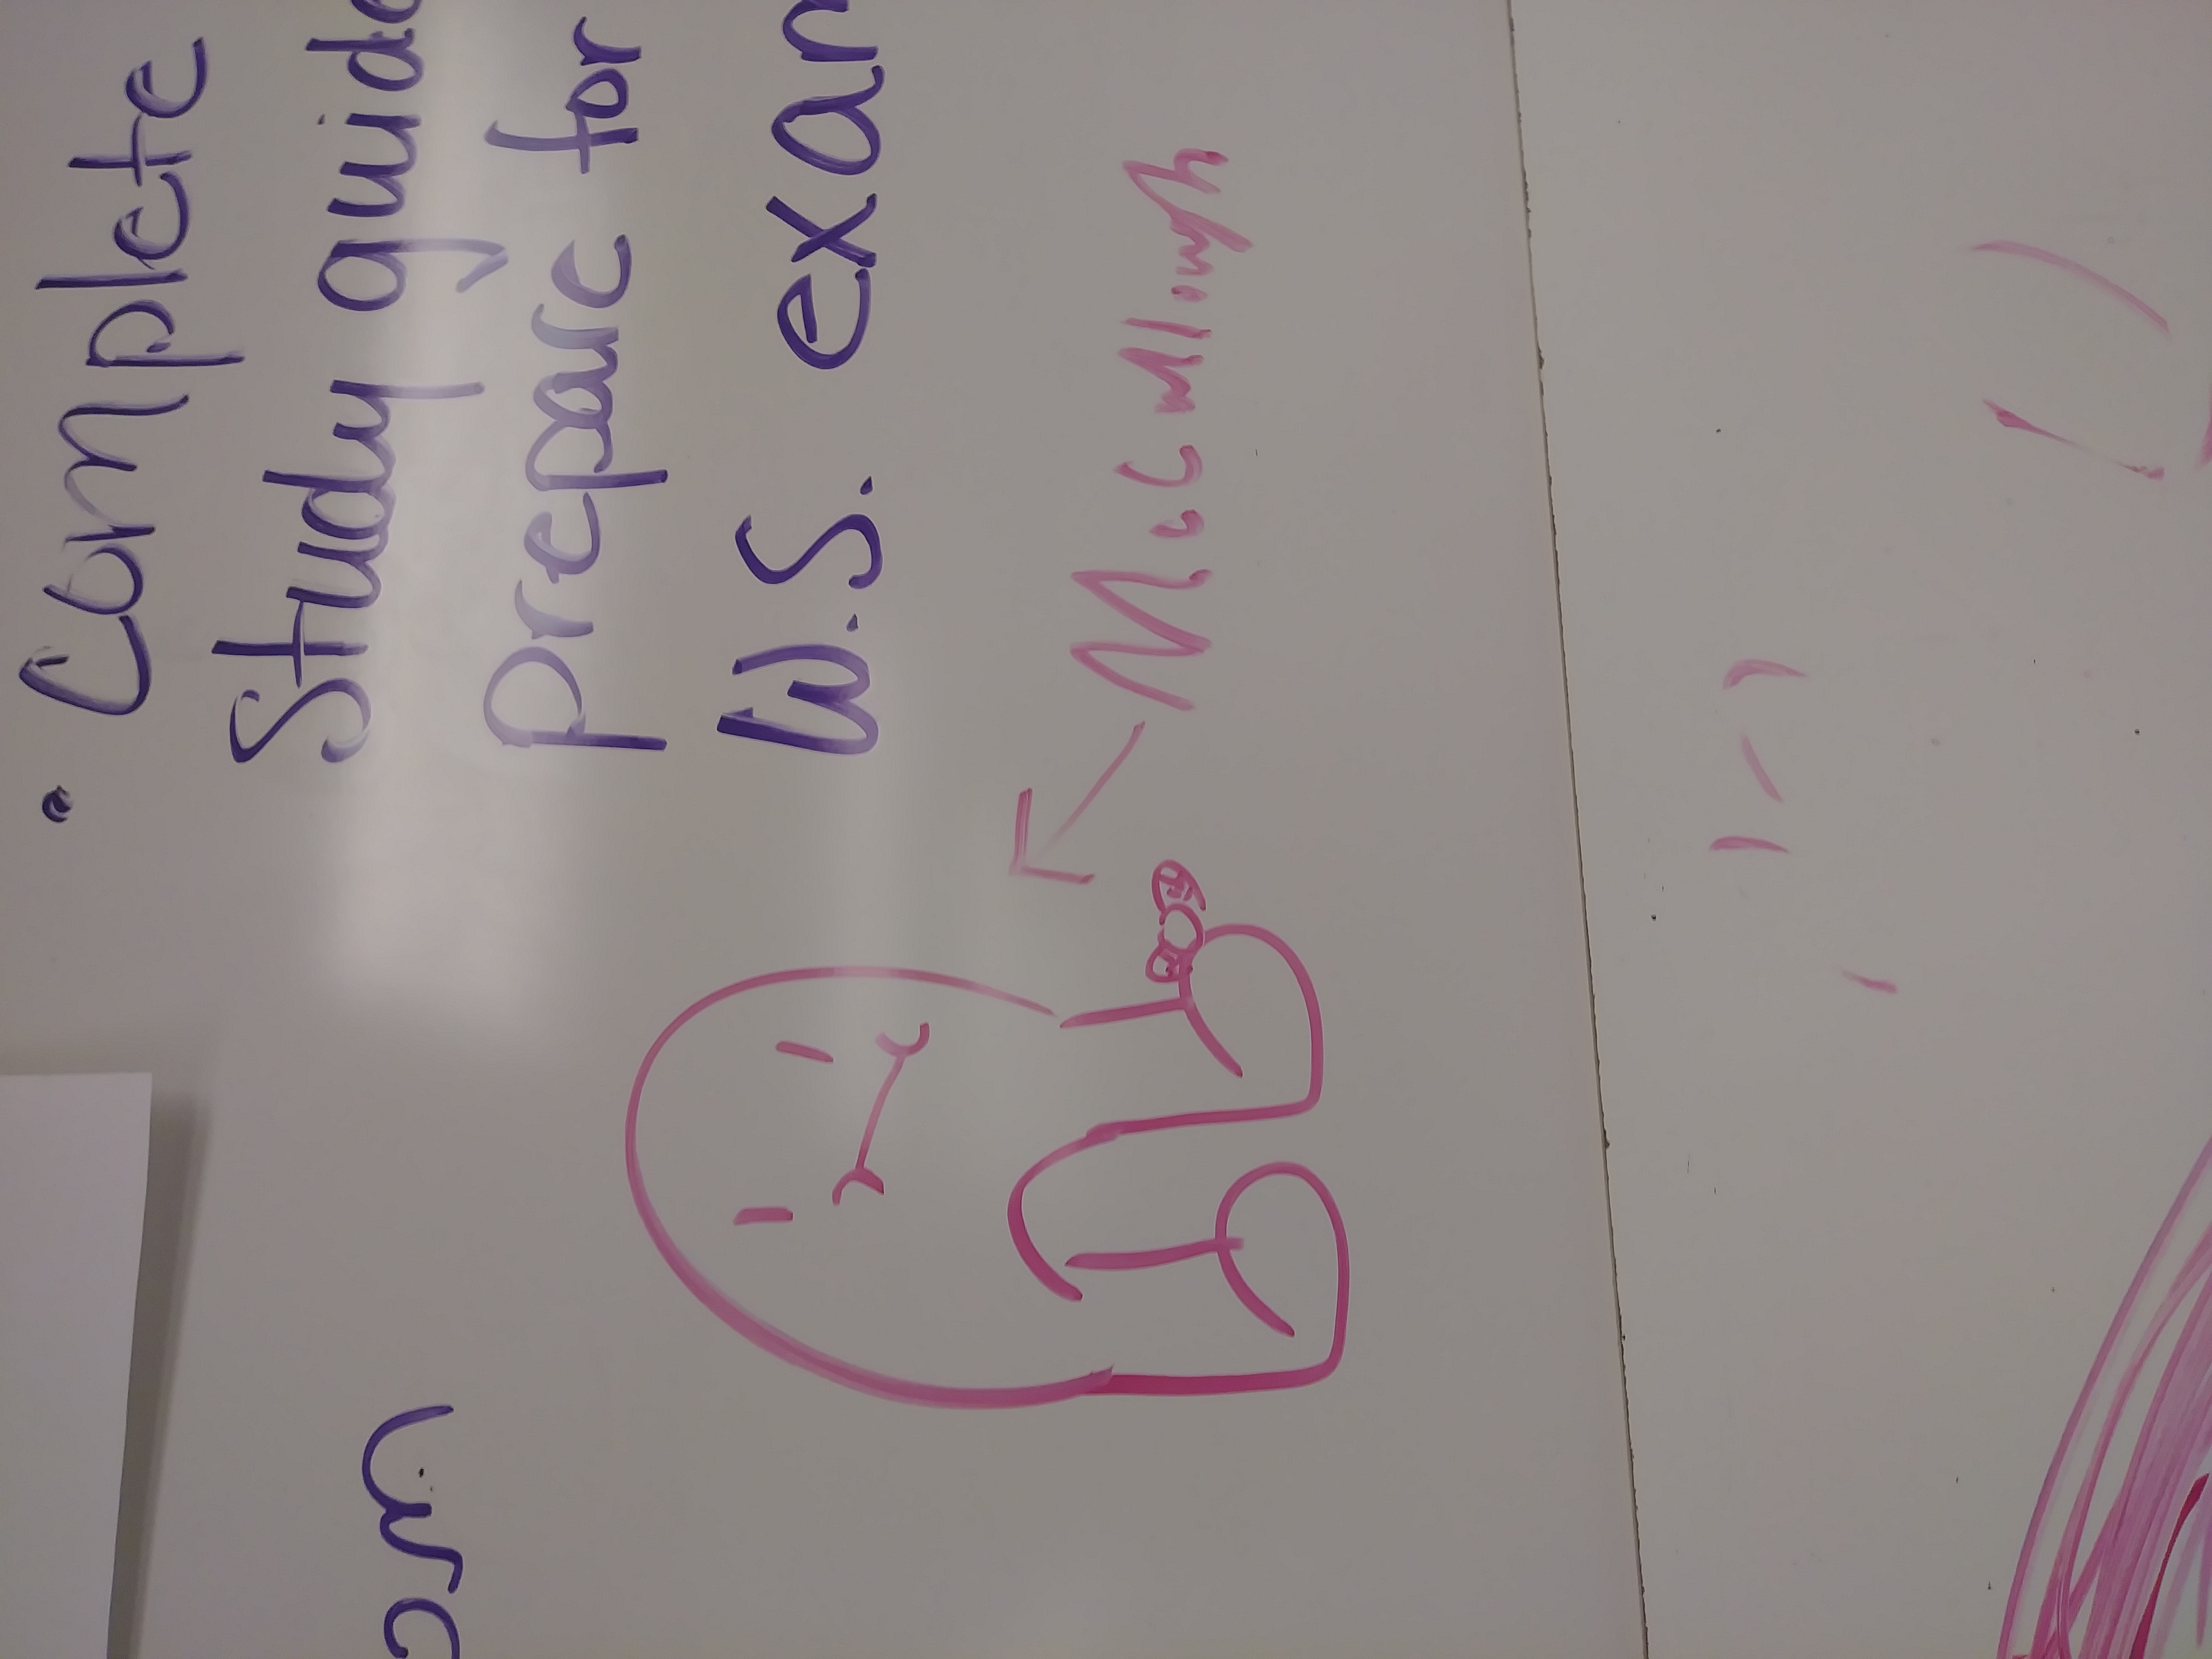 • Complete
Study guide
prepare for
W.S. exam
om
McCullough